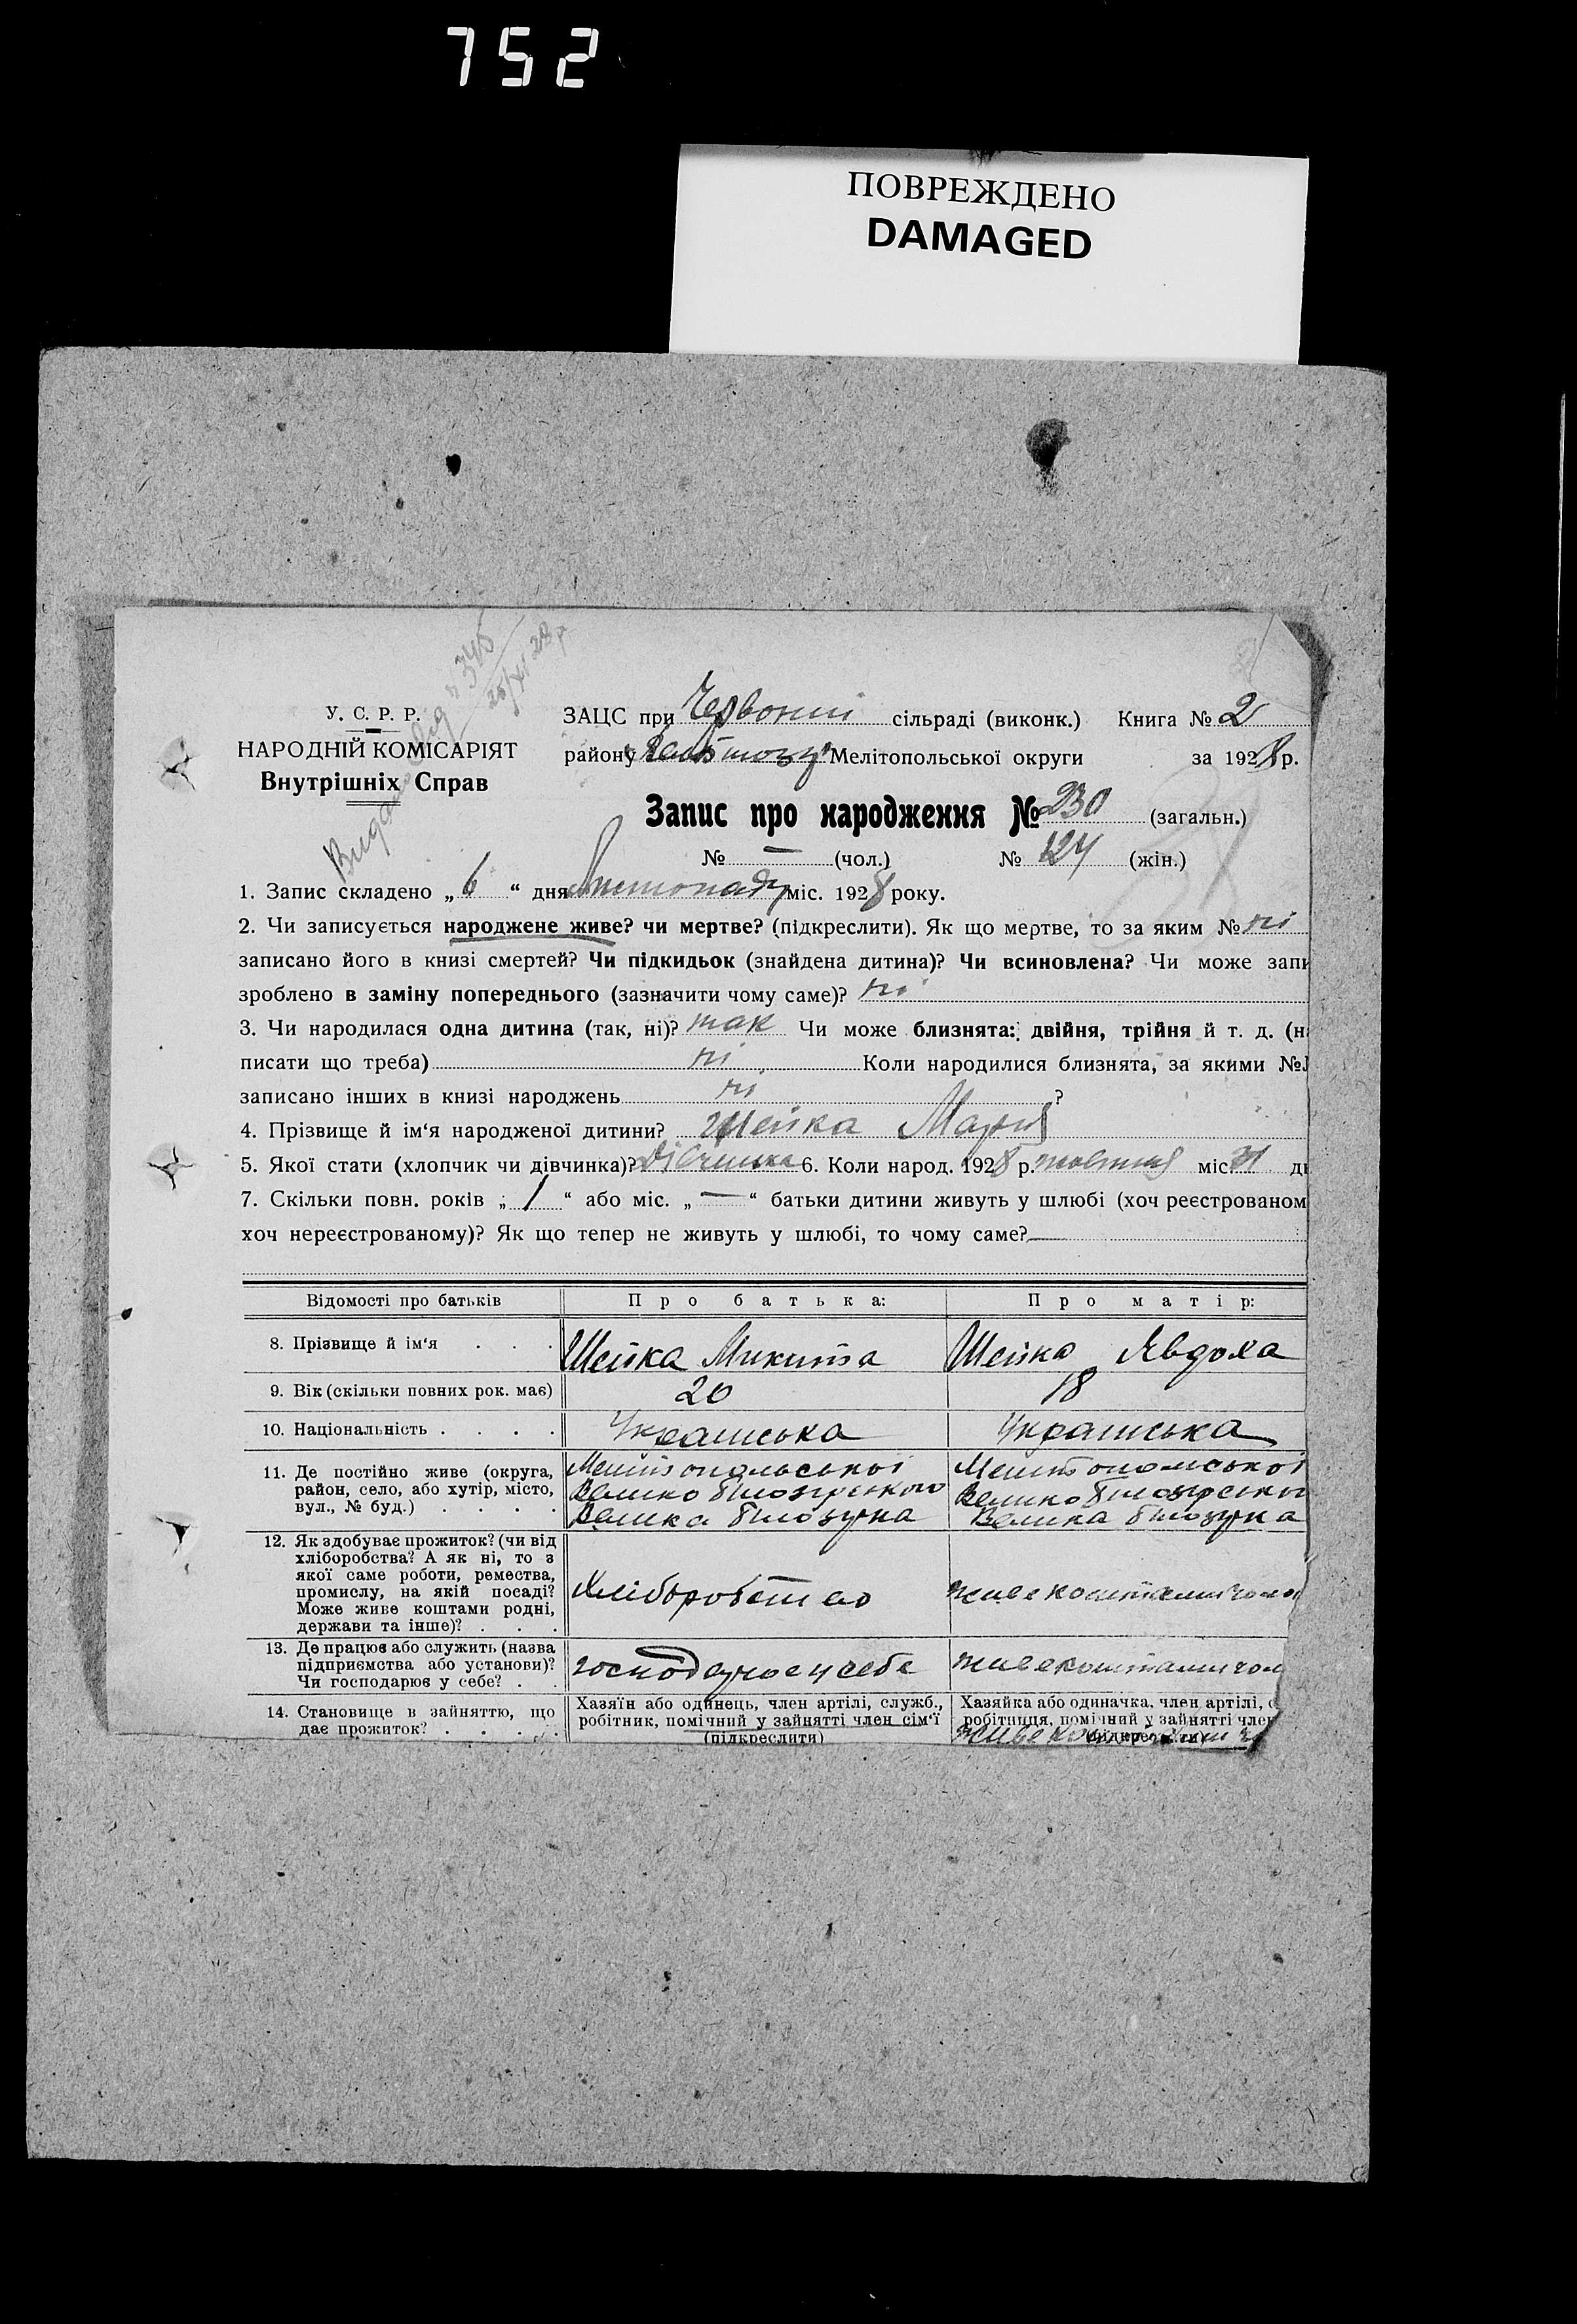 752
ПОВРЕЖДЕНО
DAMAGED
№ 345
25/XI 28 р
У. С. Р. Р.
НАРОДНІЙ КОМІСАРІЯТ
Внутрішніх Справ
ЗАЦС при Червоній сільраді (виконк.) Книга № 2
району Мелітопольської округи за 1928 р.
Запис про народження № 230 (загальн.)
№ — (чол.) № 124 (жін.)
1. Запис складено „ 6 “ дня Листопаду міс. 1928 року.
2. Чи записується народжене живе? чи мертве? (підкреслити). Як що мертве, то за яким № ні
записано його в книзі смертей? Чи підкидьок (знайдена дитина)? Чи всиновлена? Чи може запи
зроблено в заміну попереднього (зазначити чому саме)? ні
3. Чи народилася одна дитина (так, ні)? так Чи може близнята: двійня, трійня й т. д. (н
писати що треба) ні Коли народилися близнята, за якими №
записано інших в книзі народжень ні ?
4. Прізвище й ім‘я народженої дитини? Шейка Марія
5. Якої стати (хлопчик чи дівчинка)? Дівчинка 6. Коли народ. 1928 р. жовтня міс. 31 д
7. Скільки повн. років „ 1 “ або міс. „ — “ батьки дитини живуть у шлюбі (хоч реєстрованом
хоч нереєстрованому)? Як що тепер не живуть у шлюбі, то чому саме? —
Відомості про батьків Про батька: Про матір:
8. Прізвище й ім‘я . . . Шейка Микита Шейка Явдоха
9. Вік (скільки повних рок. має) 20 18
10. Національність . . . . Українська Українська
11. Де постійно живе (округа, Мелітопольської Мелітопольської
район, село, або хутір, місто, Велико білозірського Велико білозірськ
вул., № буд.) . . . . Велика білозірка Велика білозірка
12. Як здобуває прожиток? (чи від
хліборобства? А як ні, то з
якої саме роботи, ремества,
промислу, на якій посаді? Хліборобство живе коштами чол
Може живе коштами родні,
держави та інше)? . . .
13. Де працює або служить (назва
підприємства або установи)? господарює у себе живе коштами чол
Чи господарює у себе? . .
14. Становище в зайняттю, що Хазяїн або одинець, член артілі, служб., Хазяйка або одиначка, член артілі, с
дає прожиток? . . . . . робітник, помічний у зайнятті член сім‘ї робітниця, помічний у зайнятті член
(підкреслити) живе коштами ч (підкреслити)